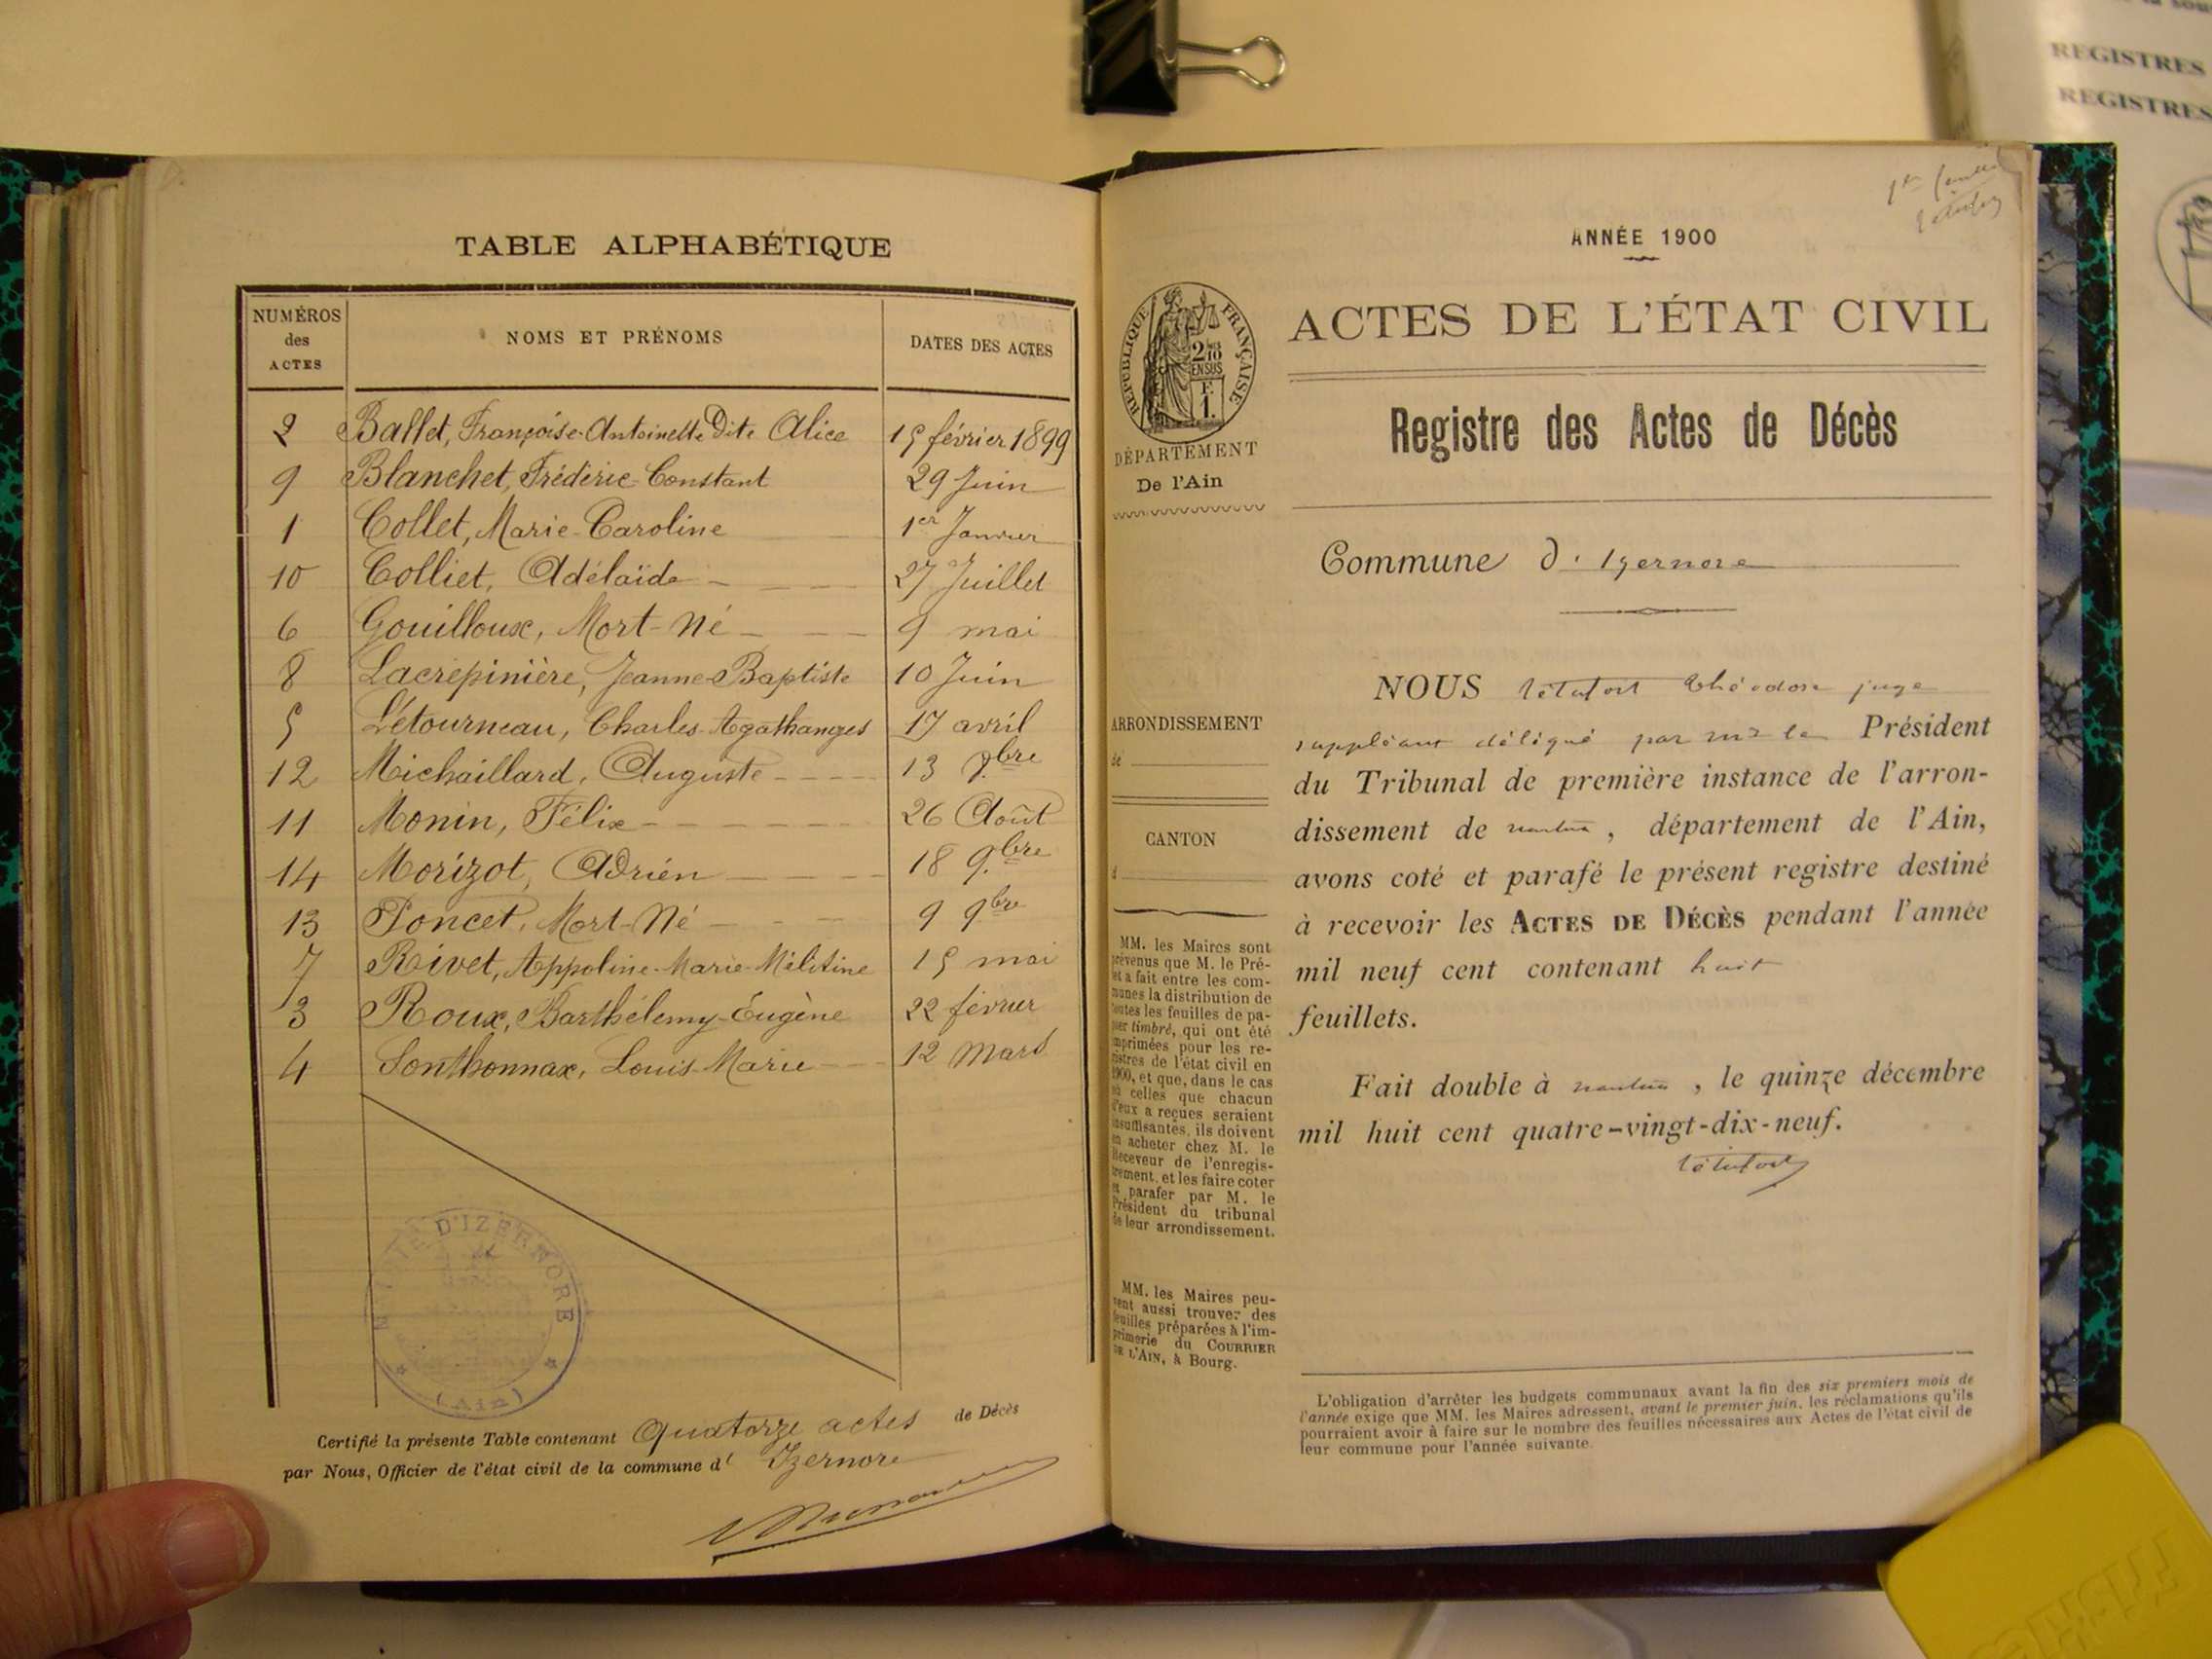 REGISTRES
REGISTRES
TABLE ALPHABÉTIQUE
NUMÉROS des ACTES
NOMS ET PRÉNOMS
DATES DES ACTES
2 Ballet, Françoise-Antoinette Dite Alice 15 février 1899
9 Blanchet, Frédéric Constant 29 Juin
1 Collet, Marie-Caroline 1er Janvier
10 Colliet, Adélaïde 27 Juillet
6 Gouilloux, Mort-Né 9 mai
8 Lacrépinière, Jeanne-Baptiste 10 Juin
5 Létourneau, Charles-Agathanges 17 avril
12 Michaillard, Auguste 13 7.bre
11 Monin, Félix 26 Août
14 Morizot, Adrien 18 9.bre
13 Poncet, Mort-Né 9 9bre
7 Rivet, Appoline-Marie-Mélitine 15 mai
3 Roux, Barthélemy-Eugène 22 février
4 Sonthonnax, Louis-Marie 12 Mars
MAIRIE D'IZERNORE
(Ain)
Certifié la présente Table contenant Quatorze actes de Décès
par Nous, Officier de l'état civil de la commune d' Izernore
ANNÉE 1900
RÉPUBLIQUE FRANÇAISE
ACTES DE L'ÉTAT CIVIL
Registre des Actes de Décès
DÉPARTEMENT
De l'Ain
Commune d' Izernore
ARRONDISSEMENT
de
CANTON
d
MM. les Maires sont
prévenus que M. le Pré-
et a fait entre les com-
munes la distribution de
toutes les feuilles de pa-
pier timbré, qui ont été
imprimées pour les re-
gistres de l'état civil en
1900, et que, dans le cas
où celles que chacun
d'eux a reçues seraient
insuffisantes, ils doivent
en acheter chez M. le
Receveur de l'enregis-
trement, et les faire coter
et parafer par M. le
Président du tribunal
de leur arrondissement.
MM. les Maires peu-
vent aussi trouver des
feuilles préparées à l'im-
primerie du COURRIER
DE L'AIN, à Bourg.
NOUS Théodore juge
suppléant délégué par Mr le Président
du Tribunal de première instance de l'arron-
dissement de nantua, département de l'Ain,
avons coté et parafé le présent registre destiné
à recevoir les ACTES DE DÉCÈS pendant l'année
mil neuf cent contenant huit
feuillets.
Fait double à nantua, le quinze décembre
mil huit cent quatre-vingt-dix-neuf.
L'obligation d'arrêter les budgets communaux avant la fin des six premiers mois de
l'année exige que MM. les Maires adressent, avant le premier juin, les réclamations qu'ils
pourraient avoir à faire sur le nombre des feuilles nécessaires aux Actes de l'état civil de
leur commune pour l'année suivante.